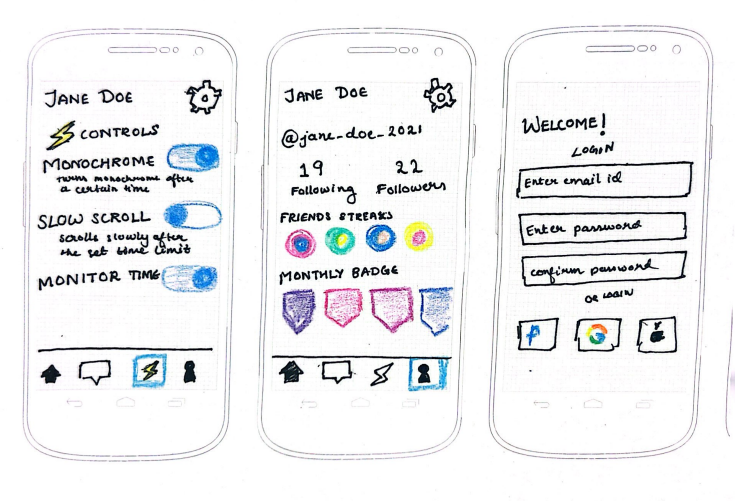 JANE DOE
CONTROLS
MONOCHROME
turns monochrome after
a certain time
SLOW SCROLL
scrolls slowly after
the set time limit
MONITOR TIME
JANE DOE
@jane_doe_2021
19 22
Following Followers
FRIENDS STREAKS
MONTHLY BADGE
WELCOME!
LOGIN
Enter email id
Enter password
confirm password
OR LOGIN
G